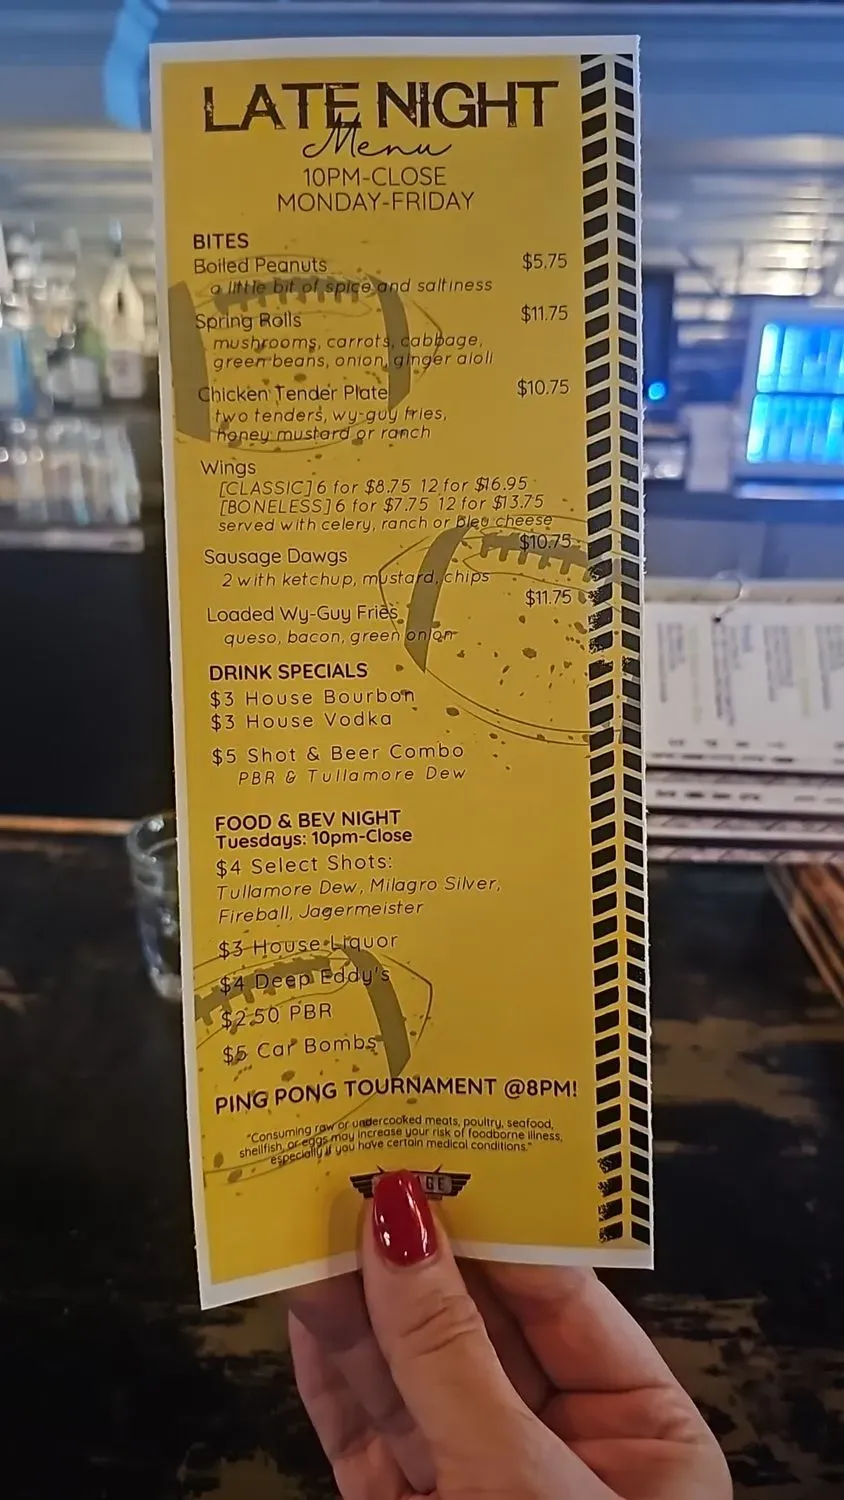 LATE NIGHT
Menu
10PM-CLOSE
MONDAY-FRIDAY
BITES
Boiled Peanuts $5.75
a little bit of spice and saltiness
Spring Rolls $11.75
mushrooms, carrots, cabbage,
green beans, onion, ginger aioli
Chicken Tender Plate $10.75
two tenders, wy-guy fries,
honey mustard or ranch
Wings
[CLASSIC] 6 for $8.75 12 for $16.95
[BONELESS] 6 for $7.75 12 for $13.75
served with celery, ranch or bleu cheese
Sausage Dawgs $10.75
2 with ketchup, mustard, chips
Loaded Wy-Guy Fries $11.75
queso, bacon, green onion
DRINK SPECIALS
$3 House Bourbon
$3 House Vodka
$5 Shot & Beer Combo
PBR & Tullamore Dew
FOOD & BEV NIGHT
Tuesdays: 10pm-Close
$4 Select Shots:
Tullamore Dew, Milagro Silver,
Fireball, Jagermeister
$3 House Liquor
$4 Deep Eddy's
$2.50 PBR
$5 Car Bombs
PING PONG TOURNAMENT @8PM!
"Consuming raw or undercooked meats, poultry, seafood,
shellfish, or eggs may increase your risk of foodborne illness,
especially if you have certain medical conditions."